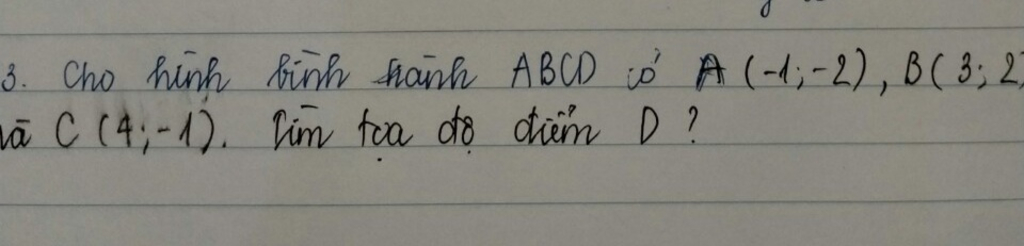 3. Cho hình bình hành ABCD có A (-1;-2), B( 3; 2
và C (4;-1). Tìm tọa độ điểm D ?